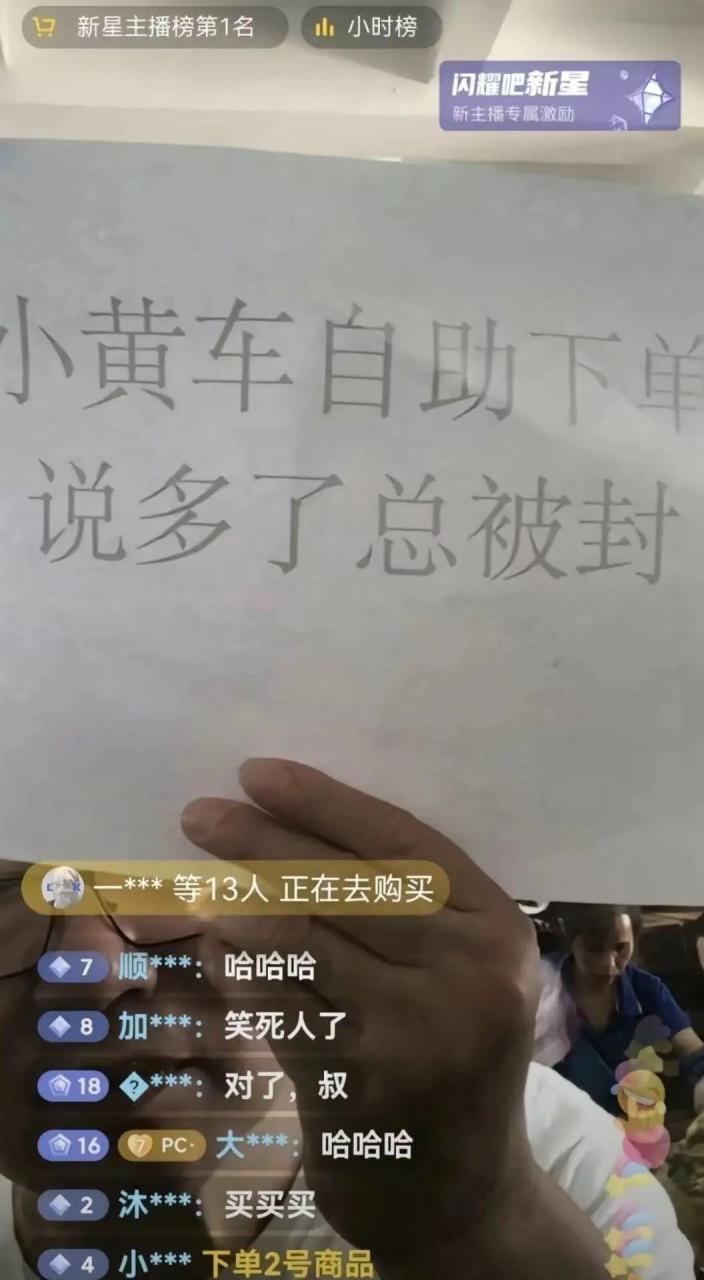 新星主播榜第1名
小时榜
闪耀吧新星
新主播专属激励
小黄车自助下单
说多了总被封
一*** 等13人 正在去购买
7 顺***：哈哈哈
8 加***：笑死人了
18 �***：对了，叔
16 7 PC· 大***：哈哈哈
2 沐***：买买买
4 小*** 下单2号商品